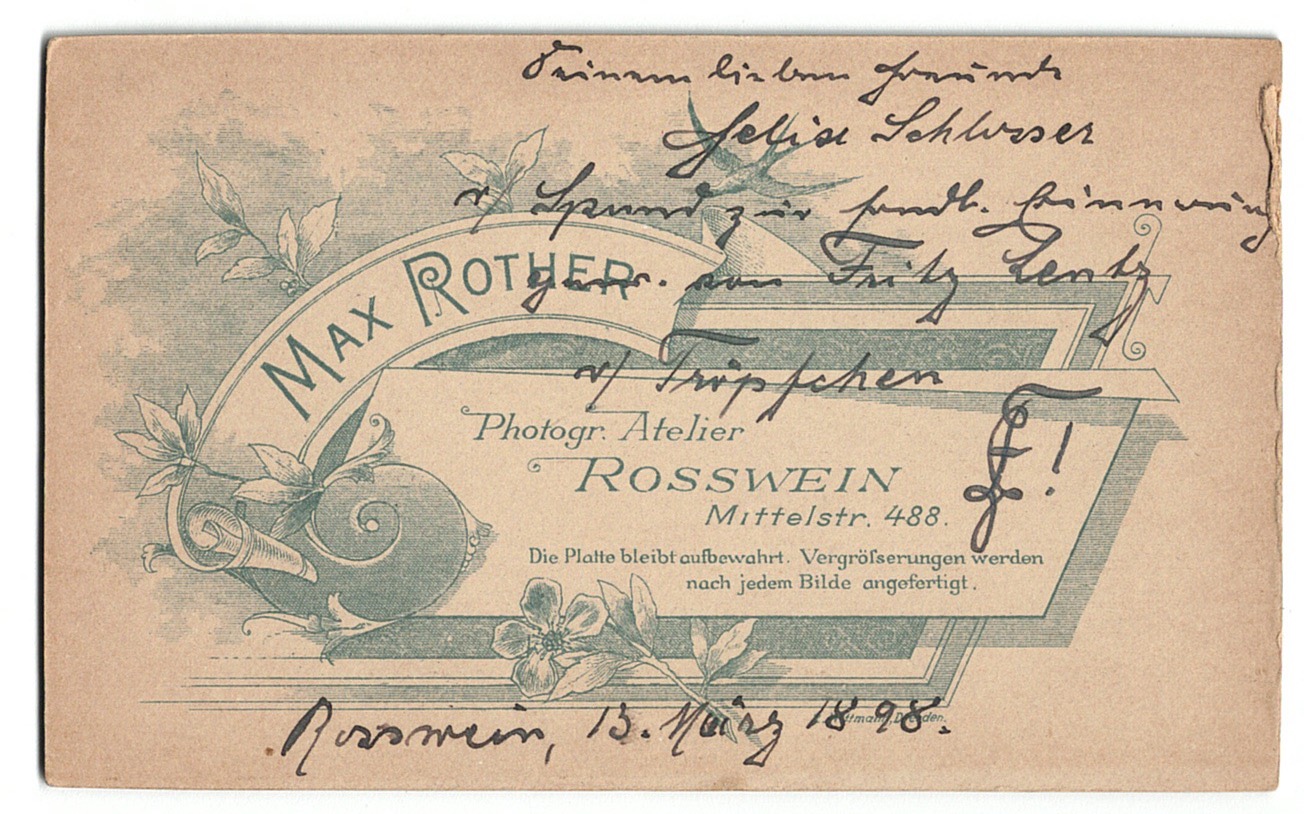 Seinem lieben Freunde
Felix Schlosser
v/ Spund zur frndl. Erinnerung
gew. von Fritz Lentz
v/ Tröpfchen
MAX ROTHER
Photogr. Atelier
ROSSWEIN
Mittelstr. 488.
Die Platte bleibt aufbewahrt. Vergröfserungen werden
nach jedem Bilde angefertigt.
Rosswein, 13. März 1898.